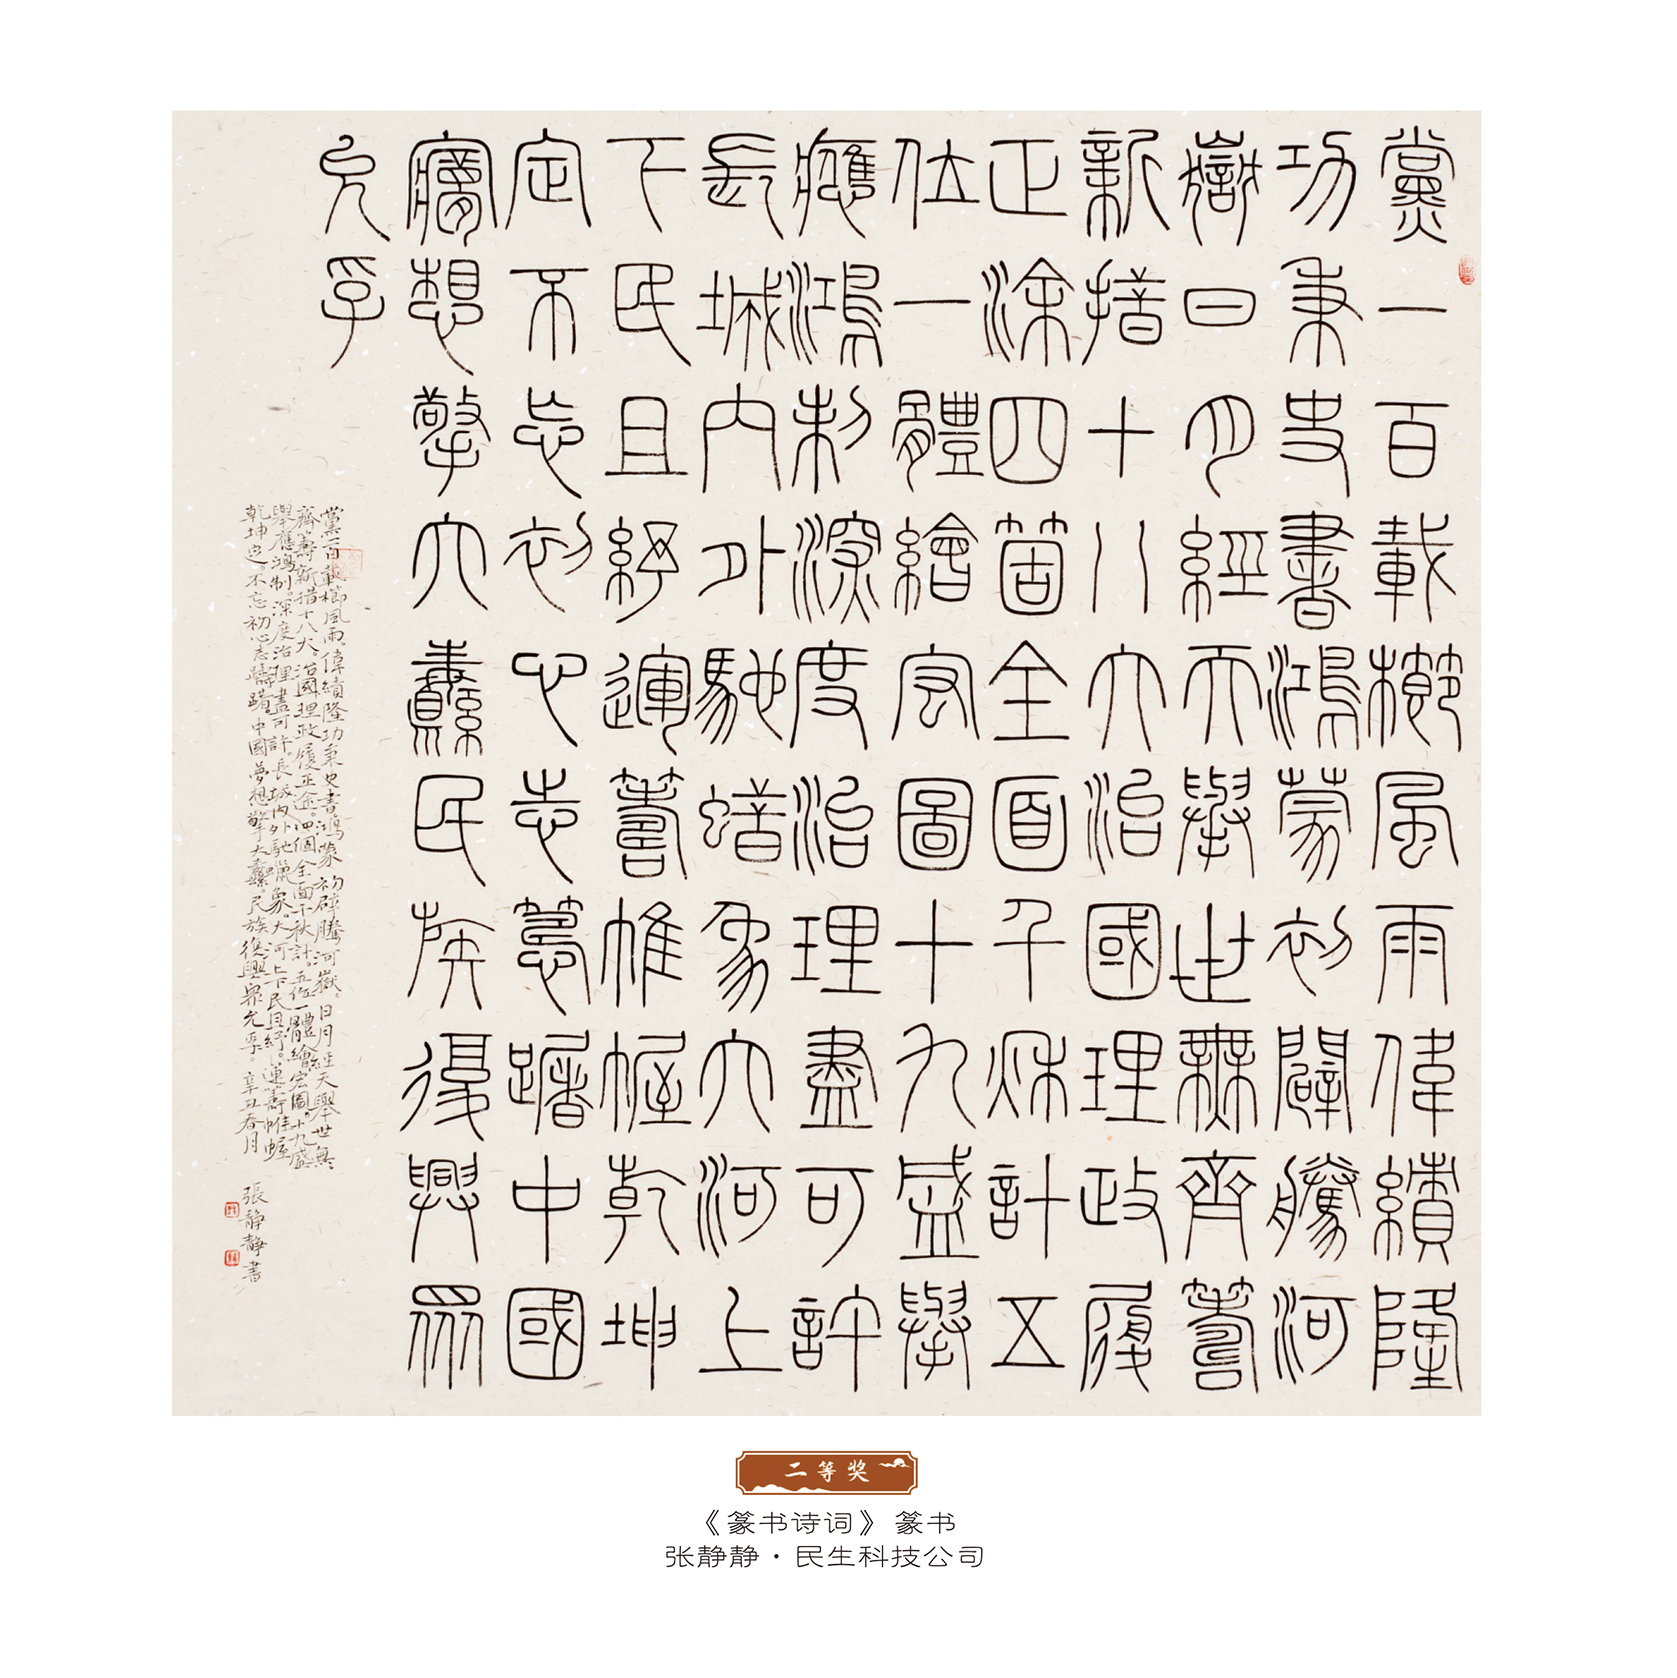 黨一百載櫛風雨偉績隆
功秉史書鴻蒙初闢騰河
嶽日月經天舉世無齊籌
新措十八大治國理政履
正涂四箇全面千秋計五
位一體繪宏圖十九盛舉
應鴻制深度治理盡可許
長城內外馳蜡象大河上
下民且紓運籌帷幄乾坤
定不忘初心志籌躇中國
夢想擎大纛民族復興眾
允孚
黨一百載櫛風雨。偉績隆功秉史書。鴻蒙初辟騰河嶽。日月經天舉世無
齊。籌新措十八大。治國理政履正途。四個全面千秋計。五位一體繪宏圖。十九盛
舉應鴻制。深度治理盡可許。長城內外馳蠟象。大河上下民且紓。運籌帷幄
乾坤定。不忘初心志躊躇。中國夢想擎大纛。民族復興眾允孚。辛丑春月
張靜靜書
二等奖
《篆书诗词》篆书
张静静·民生科技公司